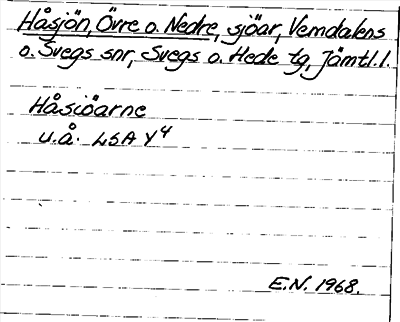 Håsjön, Övre o. Nedre, sjöar, Vemdalens
o. Svegs snr, Svegs o. Hede tg, Jämtl. l.
Håsiöarne
u.å. LSA Y4
E.N. 1968.